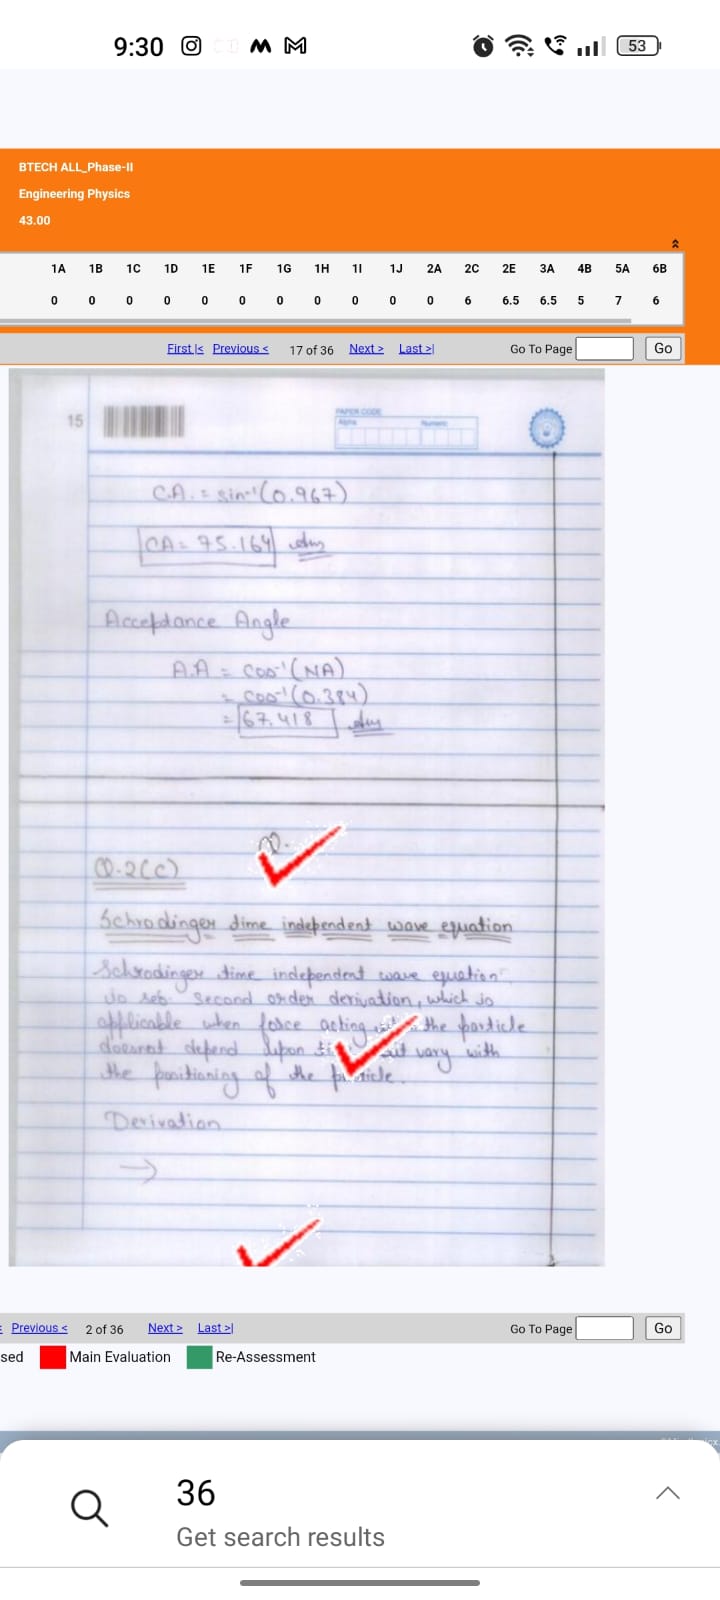 9:30
53
BTECH ALL_Phase-II
Engineering Physics
43.00
1A 1B 1C 1D 1E 1F 1G 1H 1I 1J 2A 2C 2E 3A 4B 5A 6B
0 0 0 0 0 0 0 0 0 0 0 6 6.5 6.5 5 7 6
First |< Previous < 17 of 36 Next > Last >| Go To Page Go
15
PAPER CODE
Alpha Numeric
C.A. = sin⁻¹(0.967)
CA = 75.164 Ans
Acceptance Angle
A.A = cos⁻¹(NA)
= cos⁻¹(0.384)
= 67.418 Ans
Q.
Q.2(C)
Schrodinger time independent wave equation
Schrodinger time independent wave equation
is second order derivation, which is
applicable when force acting the particle
doesnot depend upon vary with
the positioning of the particle.
Derivation
→
Previous < 2 of 36 Next > Last >| Go To Page Go
sed Main Evaluation Re-Assessment
36
Get search results